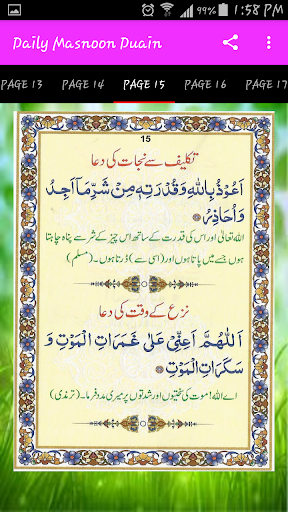 99% 1:58 PM
Daily Masnoon Duain
PAGE 13 PAGE 14 PAGE 15 PAGE 16 PAGE 17
15
تکلیف سے نجات کی دعا
اَعُوْذُ بِاللّٰهِ وَقُدْرَتِهٖ مِنْ شَرِّ مَا اَجِدُ
وَاُحَاذِرُ
اللہ تعالیٰ اور اس کی قدرت کے ساتھ اس چیز کے شر سے پناہ چاہتا
ہوں جسے میں پاتا ہوں اور (اسی سے) ڈرتا ہوں۔ (مسلم)
نزع کے وقت کی دعا
اَللّٰهُمَّ اَعِنِّىْ عَلٰى غَمَرَاتِ الْمَوْتِ وَ
سَكَرَاتِ الْمَوْتِ
اے اللہ! موت کی سختیوں اور شدتوں پر میری مدد فرما۔ (ترمذی)